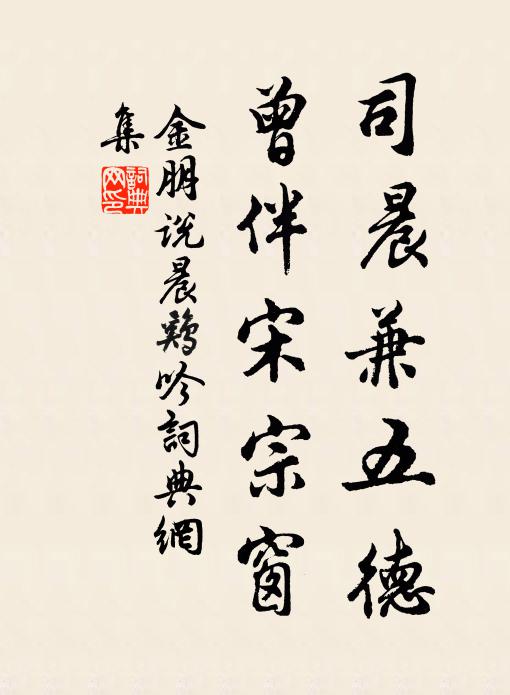 司晨兼五德
曾伴宋宗窗
金朋说晨鷄吟詞典網
集
詞典網印